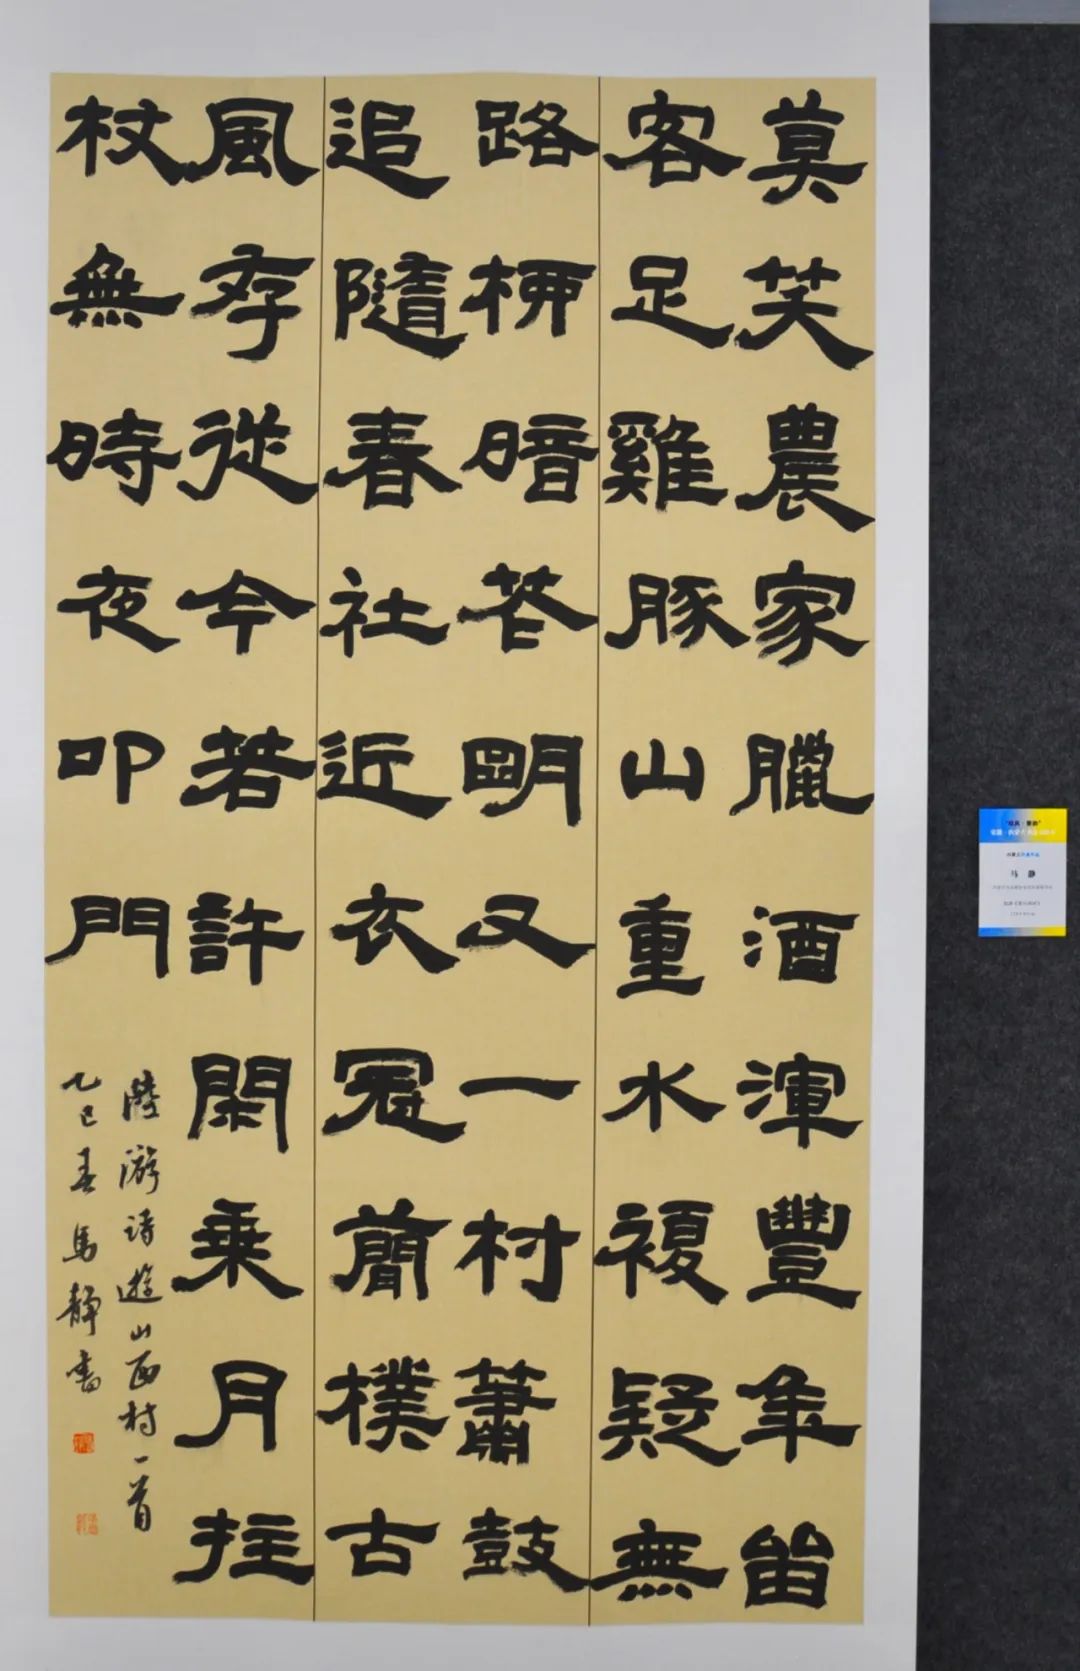 莫笑農家臘酒渾豐年留
客足雞豚山重水複疑無
路柳暗花明又一村簫鼓
追隨春社近衣冠簡樸古
風存從今若許閑乘月拄
杖無時夜叩門
陸游詩遊山西村一首
乙巳春馬靜書
马 静